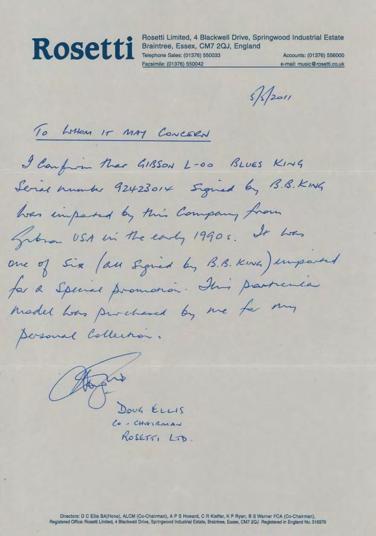 Rosetti
Rosetti Limited, 4 Blackwell Drive, Springwood Industrial Estate
Braintree, Essex, CM7 2QJ, England
Telephone Sales: (01376) 550033 Accounts: (01376) 556000
Facsimile: (01376) 550042 e-mail: music@rosetti.co.uk
5/5/2011
TO WHOM IT MAY CONCERN
I Confirm that GIBSON L-00 BLUES KING
Serial number 92423014 Signed by B.B. KING
was imported by this Company from
Gibson USA in the early 1990s. It was
one of six (all signed by B.B. KING) imported
for a special promotion. This particular
model was purchased by me for my
personal collection.
DOUG ELLIS
CO-CHAIRMAN
ROSETTI LTD.
Directors: D C Ellis BA(Hons), ALCM (Co-Chairman), A P S Howard, C R Kieffer, K P Ryan, B S Warner FCA (Co-Chairman),
Registered Office: Rosetti Limited, 4 Blackwell Drive, Springwood Industrial Estate, Braintree, Essex, CM7 2QJ Registered in England No.